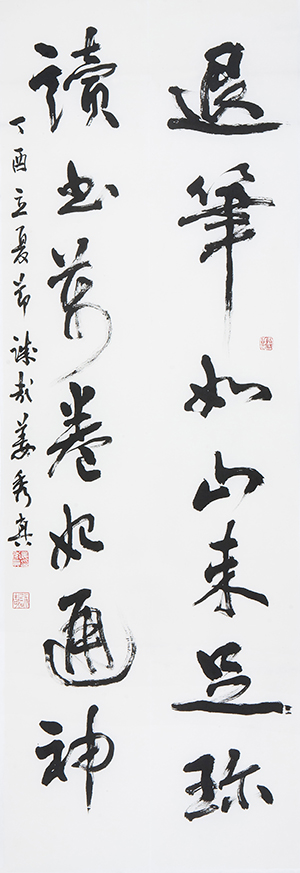 退筆如山未足珍
讀書萬卷始通神
丁酉立夏節 姜秀真